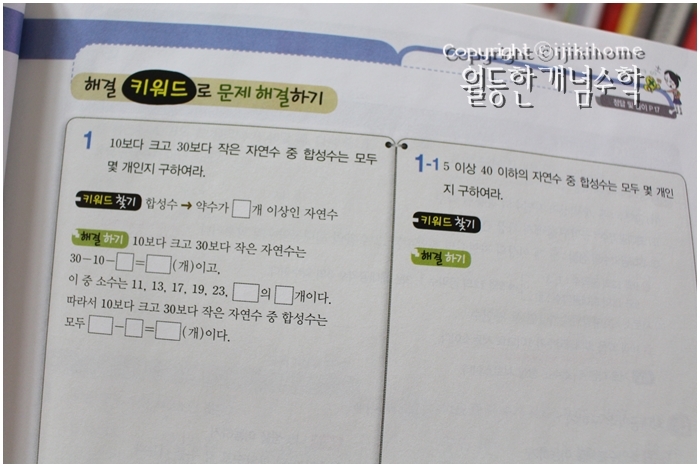 Copyright ⓒijikihome
월등한개념수학
해결 키워드로 문제 해결하기
정답 및 풀이 P.17
1 10보다 크고 30보다 작은 자연수 중 합성수는 모두
몇 개인지 구하여라.
키워드 찾기 합성수 → 약수가 □개 이상인 자연수
해결하기 10보다 크고 30보다 작은 자연수는
30-10-□=□(개)이고,
이 중 소수는 11, 13, 17, 19, 23, □의 □개이다.
따라서 10보다 크고 30보다 작은 자연수 중 합성수는
모두 □-□=□(개)이다.
1-1 5 이상 40 이하의 자연수 중 합성수는 모두 몇 개인
지 구하여라.
키워드 찾기
해결하기